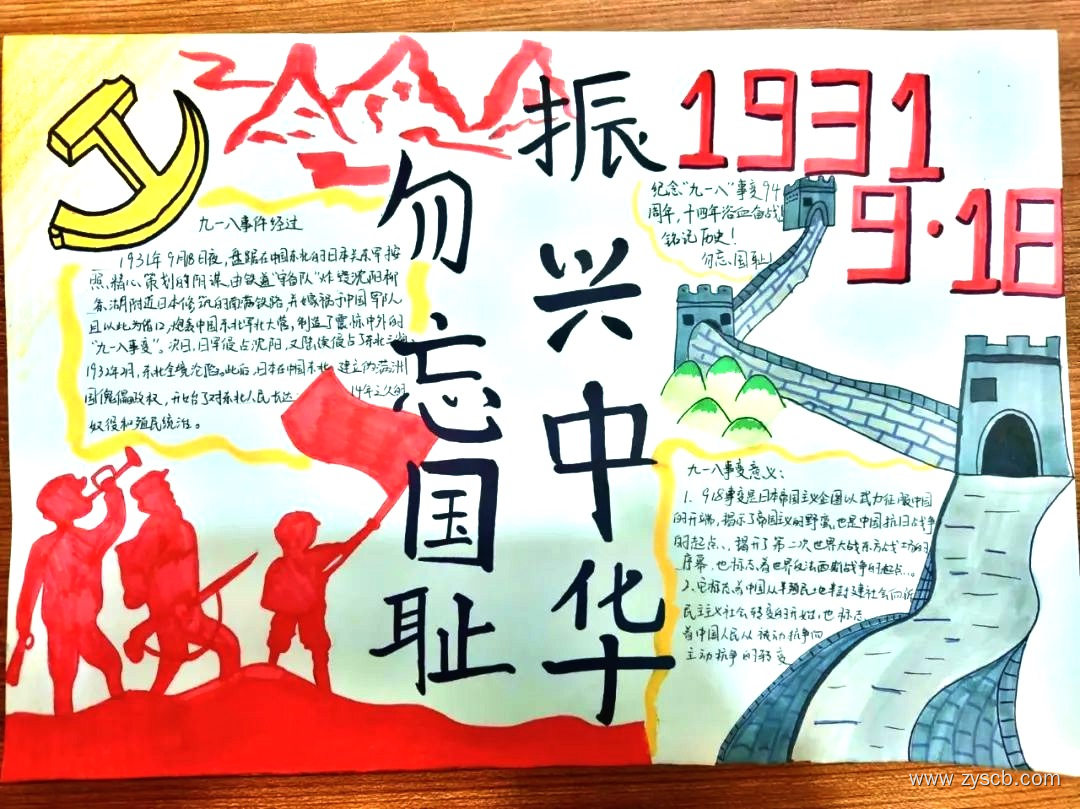 勿忘国耻
振兴中华
1931
9·18
纪念"九一八"事变94
周年,十四年浴血奋战!
铭记历史!
勿忘国耻!
九一八事件经过
1931年9月18日夜,盘踞在中国东北的日本关东军按
照精心策划的阴谋,由铁道"守备队"炸毁沈阳柳
条湖附近日本修筑的南满铁路,并嫁祸于中国军队
且以此为借口,炮轰中国东北军北大营,制造了震惊中外的
"九一八事变"。次日,日军侵占沈阳,又陆续侵占了东北三
1932年2月,东北全境沦陷。此后,日本在中国东北 建立伪满洲
国傀儡政权,开始了对东北人民长达 14年之久的
奴役和殖民统治。
九一八事变意义:
1. 918事变是日本帝国主义企图以武力征服中国
的开端,揭示了帝国主义的野蛮,也是中国抗日战争
的起点、揭开了第二次世界大战东方战场的
序幕,也标志着世界反法西斯战争的起点...。
2、它标志着中国从半殖民地半封建社会向新
民主主义社会转变的开始,也标志
着中国人民从被动抗争向
主动抗争的转变
www.zyscb.com